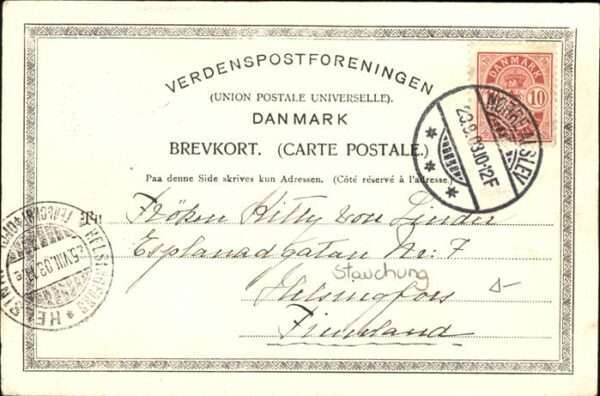 VERDENSPOSTFORENINGEN
(UNION POSTALE UNIVERSELLE).
DANMARK
BREVKORT. (CARTE POSTALE.)
Paa denne Side skrives kun Adressen. (Côté réservé à l'adresse.)
DANMARK
10
23.8.03.10-12F
Til
Fröken Kitty von Linder
Esplanadgatan No: 7
Stauchung
Helsingfors
Finnland
HELSINGFORS